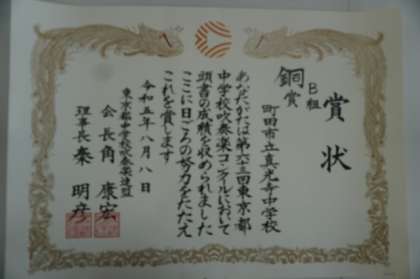 賞状
B組
銅賞
町田市立真光寺中学校
あなたがたは第六三回東京都
中学校吹奏楽コンクールにおいて
頭書の成績を収められました
ここに日ごろの努力をたたえ
これを賞します
令和五年八月八日
東京都中学校吹奏楽連盟
会長角康宏
理事長秦明彦